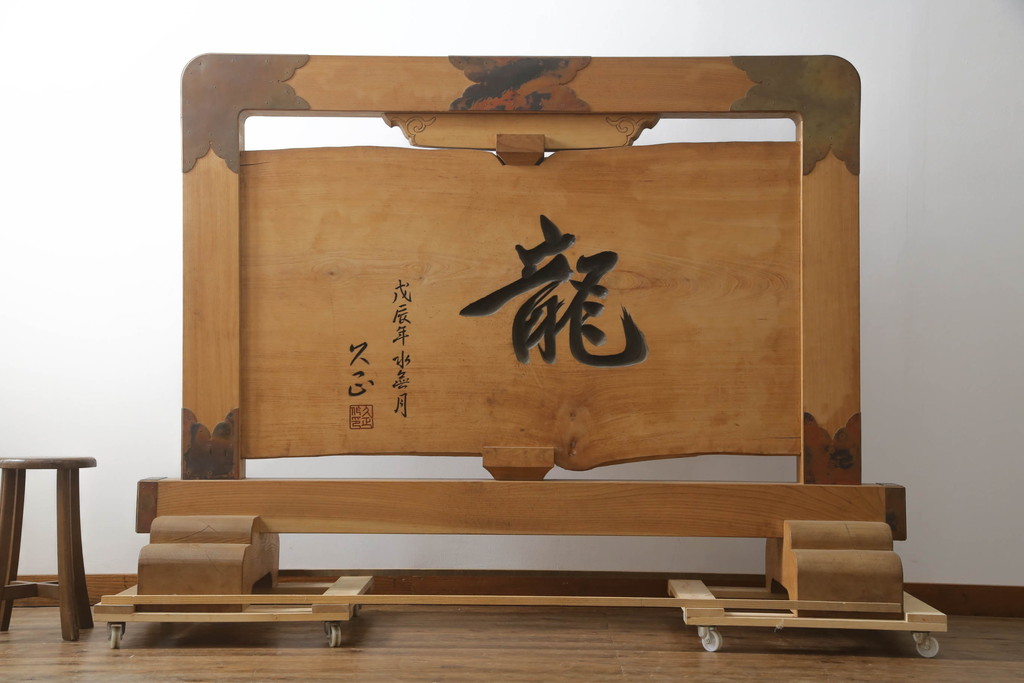 龍
戊辰年水無月
久正
久正